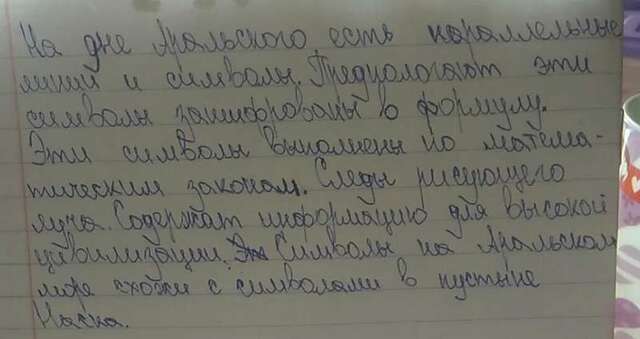 На дне Аральского есть параллельные
линии и символы. Предпологают эти
символы зашифрованы в формулу.
Эти символы выполнены по матема-
тическим законам. Следы рисующего
луча. Содержат информацию для высокой
цивилизации. Символы на Аральском
море схожи с символами в пустыне
Наска.